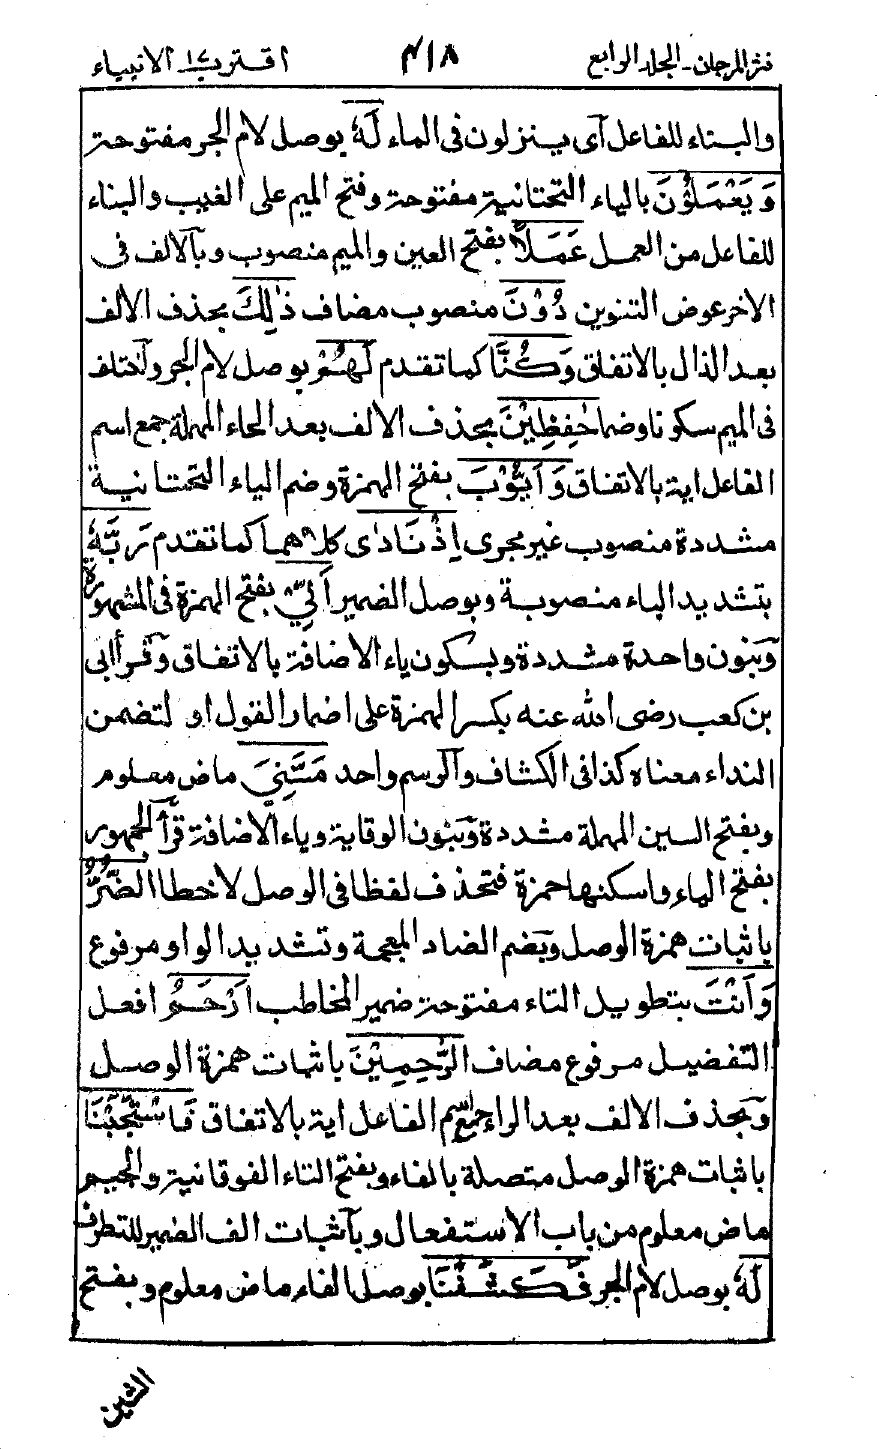 نثر المرجان - المجلد الرابع ۴۱۸ اقترب ١٧ الانبياء
والبناء للفاعل اى ينزلون فى الماء لَهٗ بوصل لام الجر مفتوحة
وَيَعْمَلُوْنَ بالياء التحتانية مفتوحة وفتح الميم على الغيب والبناء
للفاعل من العمل عَمَلًا بفتح العين والميم منصوب وبالالف فى
الاخر عوض التنوين دُوْنَ منصوب مضاف ذٰلِكَ بحذف الالف
بعد الذال بالاتفاق وَكُنَّا كما تقدم لَهُمْ بوصل لام الجر واختلف
فى الميم سكونا وضما حٰفِظِيْنَ بحذف الالف بعد الحاء المهملة جمع اسم
الفاعل اية بالاتفاق وَاَيُّوْبَ بفتح الهمزة وضم الياء التحتانية
مشددة منصوب غير مجرى اِذْ نَادٰى كلاهما كما تقدم رَبَّهٗ
بتشديد الباء منصوبة وبوصل الضمير اَنِّيْ بفتح الهمزة فى المشهورة
وبنون واحدة مشددة وبسكون ياء الاضافة بالاتفاق وقرأ ابى
بن كعب رضى الله عنه بكسر الهمزة على اضمار القول او لتضمن
النداء معناه كذا فى الكشاف والرسم واحد مَسَّنِيَ ماض معلوم
وبفتح السين المهملة مشددة وبنون الوقاية وياء الاضافة قرأ الجمهور
بفتح الياء واسكنها حمزة فتحذف لفظا فى الوصل لا خطا الضُّرُّ
باثبات همزة الوصل وبضم الضاد المعجمة وتشديد الواو مرفوع
وَاَنْتَ بتطويل التاء مفتوحة ضمير المخاطب اَرْحَمُ افعل
التفضيل مرفوع مضاف الرّٰحِمِيْنَ باثبات همزة الوصل
وبحذف الالف بعد الراء جمع اسم الفاعل اية بالاتفاق فَاسْتَجَبْنَا
باثبات همزة الوصل متصلة بالفاء وبفتح التاء الفوقانية والجيم
ماض معلوم من باب الاستفعال وباثبات الف الضمير للتطرف
لَهٗ بوصل لام الجر فَكَشَفْنَا بوصل الفاء ماض معلوم وبفتح
الشين